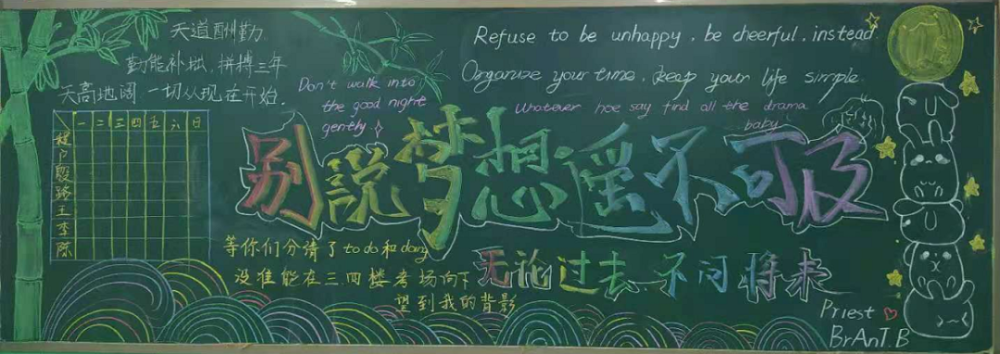 天道酬勤.
勤能补拙.拼搏三年
天高地阔 一切从现在开始.
Refuse to be unhappy . be cheerful . instead.
Organize your time . keep your life simple.
Don't walk into
the good night
gently
Whatever hoe say find all the drama
baby
一 二 三 四 五 六 日
程
户
殷
路
王
李
陈
别說梦想遥不可及
等你们分清了 to do 和 doing
没准能在三四楼考场向下
望到我的背影
无论过去 不问将来
Priest
BrAnT.B